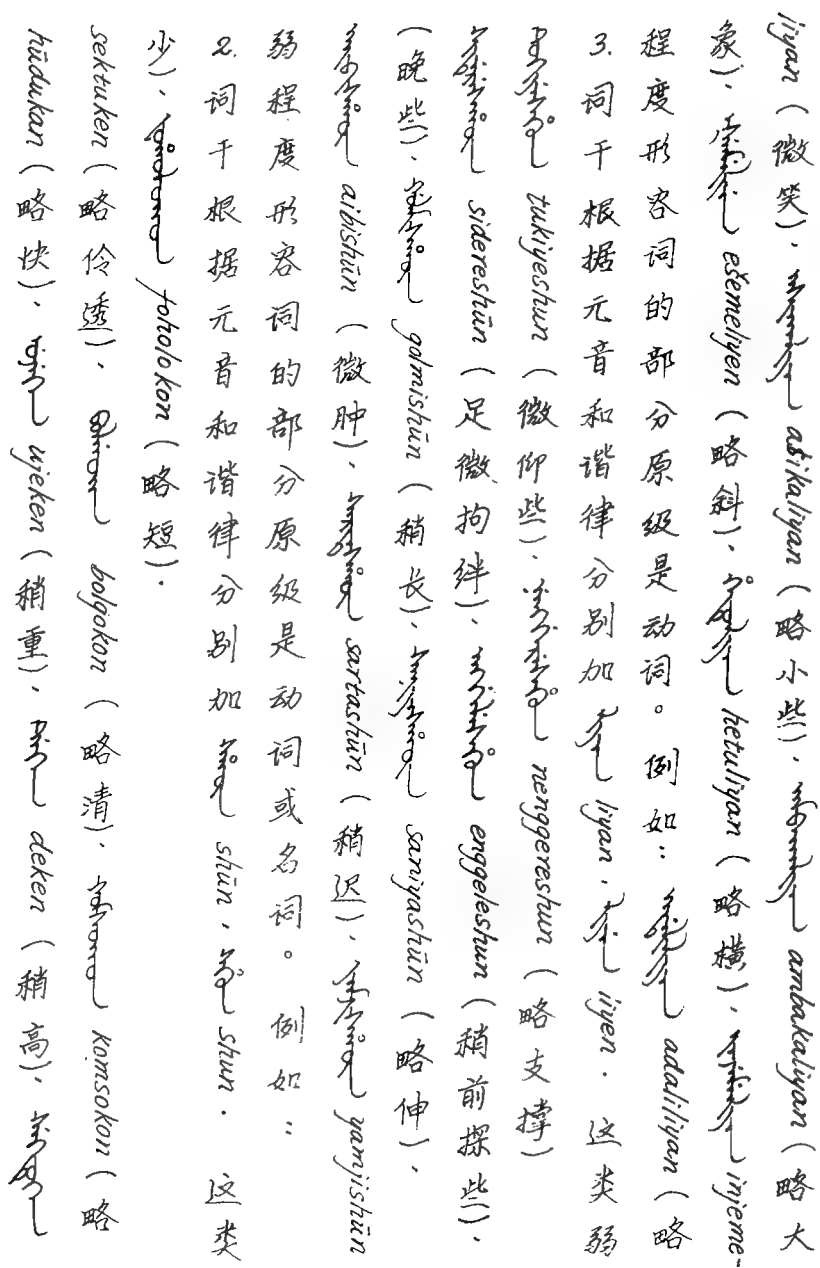 hūdukan（略快）、ᡠᠵᡝᡴᡝᠨ ujeken（稍重）、ᡩᡝᡴᡝᠨ deken（稍高）、ᠰᡝᡴᡨᡠᡴᡝᠨ
sektuken（略伶透）、ᠪᠣᠯᡤᠣᡴᠣᠨ bolgokon（略清）、ᡴᠣᠮᠰᠣᡴᠣᠨ komsokon（略
少）、ᡶᠣᡥᠣᠯᠣᡴᠣᠨ foholokon（略短）.
2. 词干根据元音和谐律分别加 ᠰᡥᡡᠨ shūn、ᠰᡥᡠᠨ shun. 这类
弱程度形容词的部分原级是动词或名词。例如：
ᠠᡳᠪᡳᠰᡥᡡᠨ aibishūn（微肿）、ᠰᠠᡵᡨᠠᠰᡥᡡᠨ sartashūn（稍迟）、ᠶᠠᠮᠵᡳᠰᡥᡡᠨ yamjishūn
（晚些）、ᡤᠣᠯᠮᡳᠰᡥᡡᠨ golmishūn（稍长）、ᠰᠠᠨᡳᠶᠠᠰᡥᡡᠨ saniyashūn（略伸）、
ᠰᡳᡩᡝᡵᡝᠰᡥᡡᠨ sidereshūn（足微拘绊）、ᡝᠩᡤᡝᠯᡝᠰᡥᡠᠨ enggeleshun（稍前探些）、
ᡨᡠᡴᡳᠶᡝᠰᡥᡠᠨ tukiyeshun（微仰些）、ᠨᡝᠩᡤᡝᡵᡝᠰᡥᡠᠨ nenggereshun（略支撑）
3. 词干根据元音和谐律分别加 ᠯᡳᠶᠠᠨ liyan、ᠯᡳᠶᡝᠨ liyen. 这类弱
程度形容词的部分原级是动词。例如：ᠠᡩᠠᠯᡳᠯᡳᠶᠠᠨ adaliliyan（略
象）、ᡝᡧᡝᠮᡝᠯᡳᠶᡝᠨ ešemeliyen（略斜）、ᡥᡝᡨᡠᠯᡳᠶᠠᠨ hetuliyan（略横）、ᡳᠨᵉᠵᡝᠮᡝᠯᡳᠶᠠᠨ injeme-
liyan（微笑）、ᠠᡧᡳᡴᠠᠯᡳᠶᠠᠨ ašikaliyan（略小些）、ᠠᠮᠪᠠᡴᠠᠯᡳᠶᠠᠨ ambakaliyan（略大